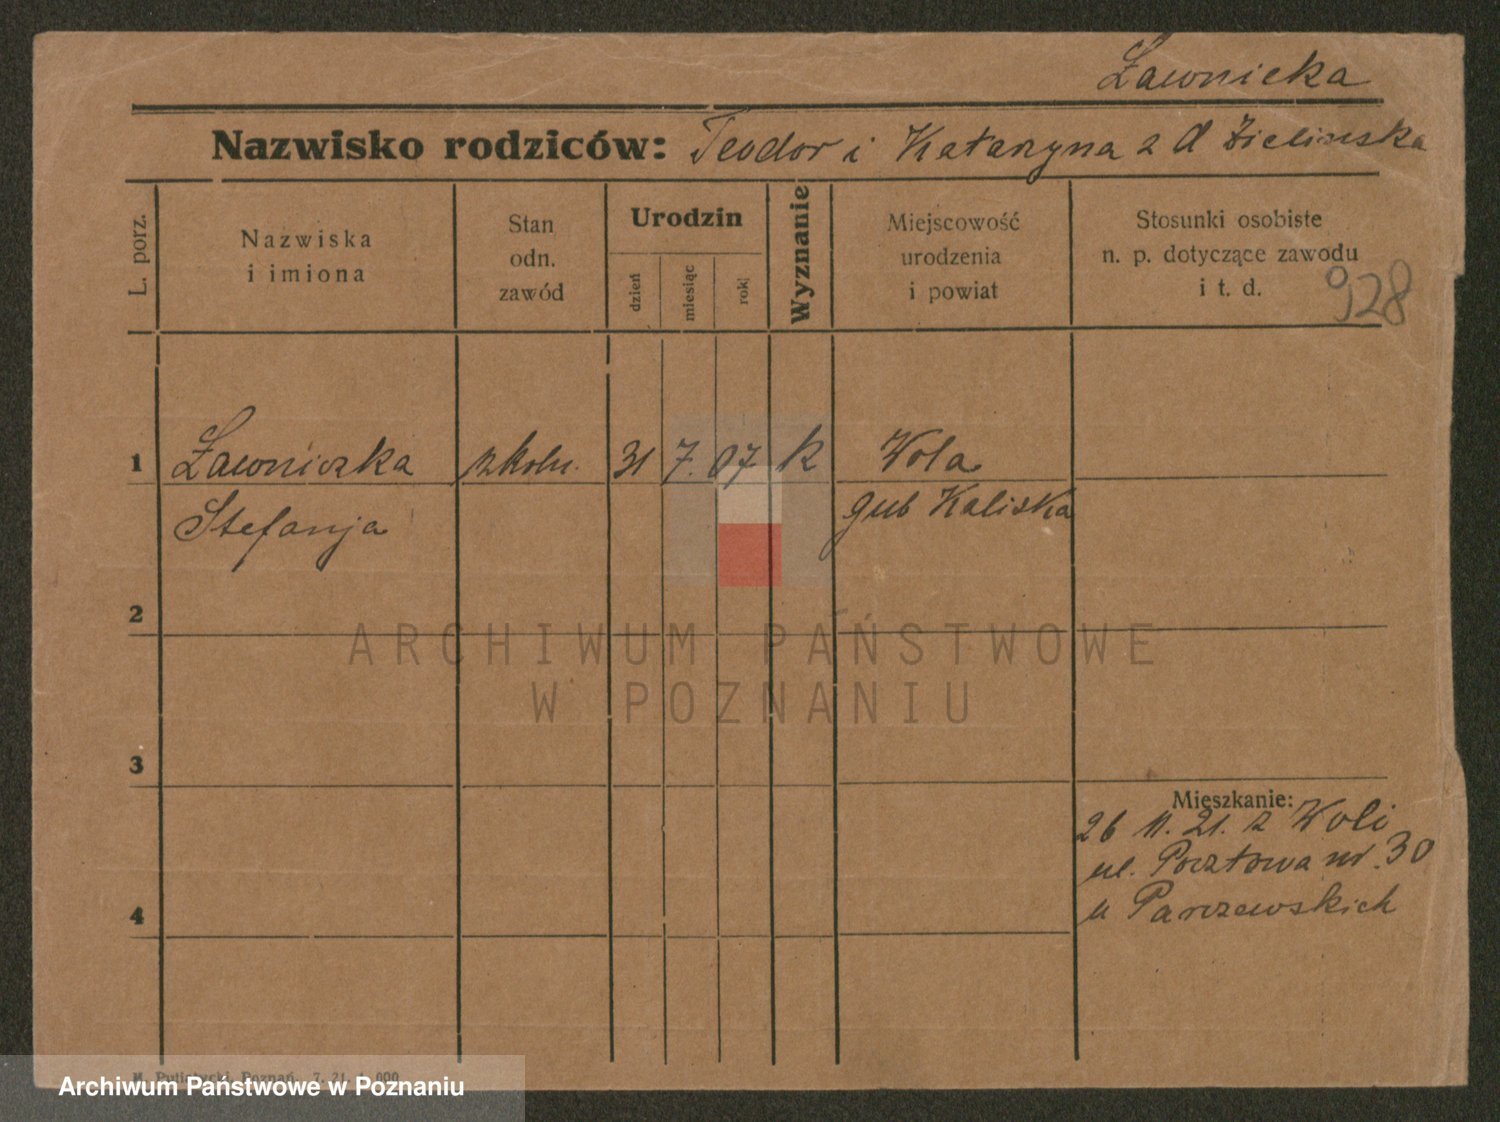 Ławnicka
Nazwisko rodziców: Teodor i Katarzyna z d Zielińska
L. porz.
Nazwiska
i imiona
Stan
odn.
zawód
Urodzin
dzień
miesiąc
rok
Wyznanie
Miejscowość
urodzenia
i powiat
Stosunki osobiste
n. p. dotyczące zawodu
i t. d.
928
1 Ławniczka 31 7. 07 k Wola
Stefanja gub Kaliska
2
ARCHIWUM PAŃSTWOWE
W POZNANIU
3
Mieszkanie:
26 11. 21. z Woli
ul. Pocztowa nr. 30
u Parczewskich
4
Poznań, 7. 21.
Archiwum Państwowe w Poznaniu